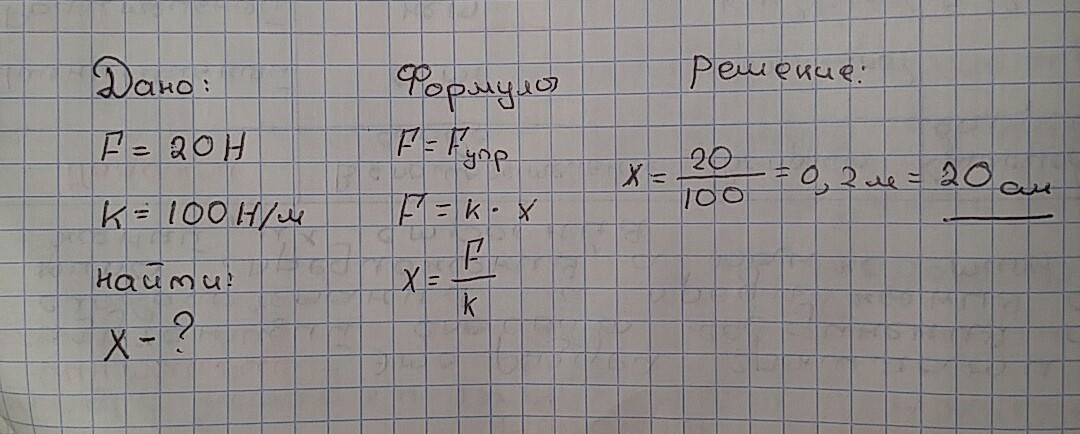 Дано:
F = 20 Н
K = 100 Н/м
найти:
X - ?
Формула
F = Fупр
F = к · х
X = F/к
Решение:
X = 20/100 = 0,2 м = 20 см